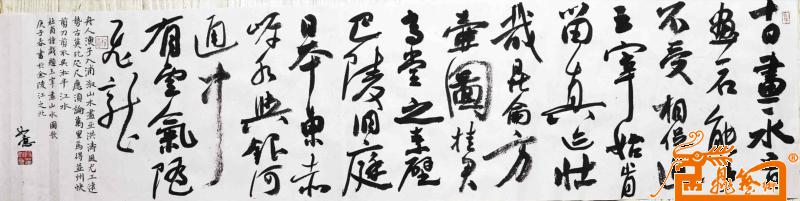 十日畫一水五
畫一石能事
不受相促迫
王宰始肯
留真迹壯
哉昆侖方
壺圖挂君
高堂之素壁
巴陵洞庭
日本東赤
岸水與銀河
通中
有雲氣隨
飛龍
舟人漁子入浦溆山木盡亞洪濤風尤工遠
勢古莫比咫尺應須論萬里焉得並州快
剪刀剪取吳淞半江水
杜甫詩戲題王宰畫山水圖歌
庚子春書於金陵江之北